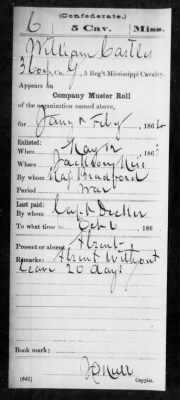 (Confederate.)
6 5 Cav. Miss.
William Castles
Co. G, 5 Reg't Mississippi Cavalry.
Appears on
Company Muster Roll
of the organization named above,
for Jany & Feby, 186
Enlisted:
When May 12, 186
Where Jackson Miss
By whom Capt Bradford
Period War
Last paid:
By whom Capt Decker
To what time Oct, 186
Present or absent Absent
Remarks: Absent Without
leave 20 days
Book mark:
(642) Copyist.